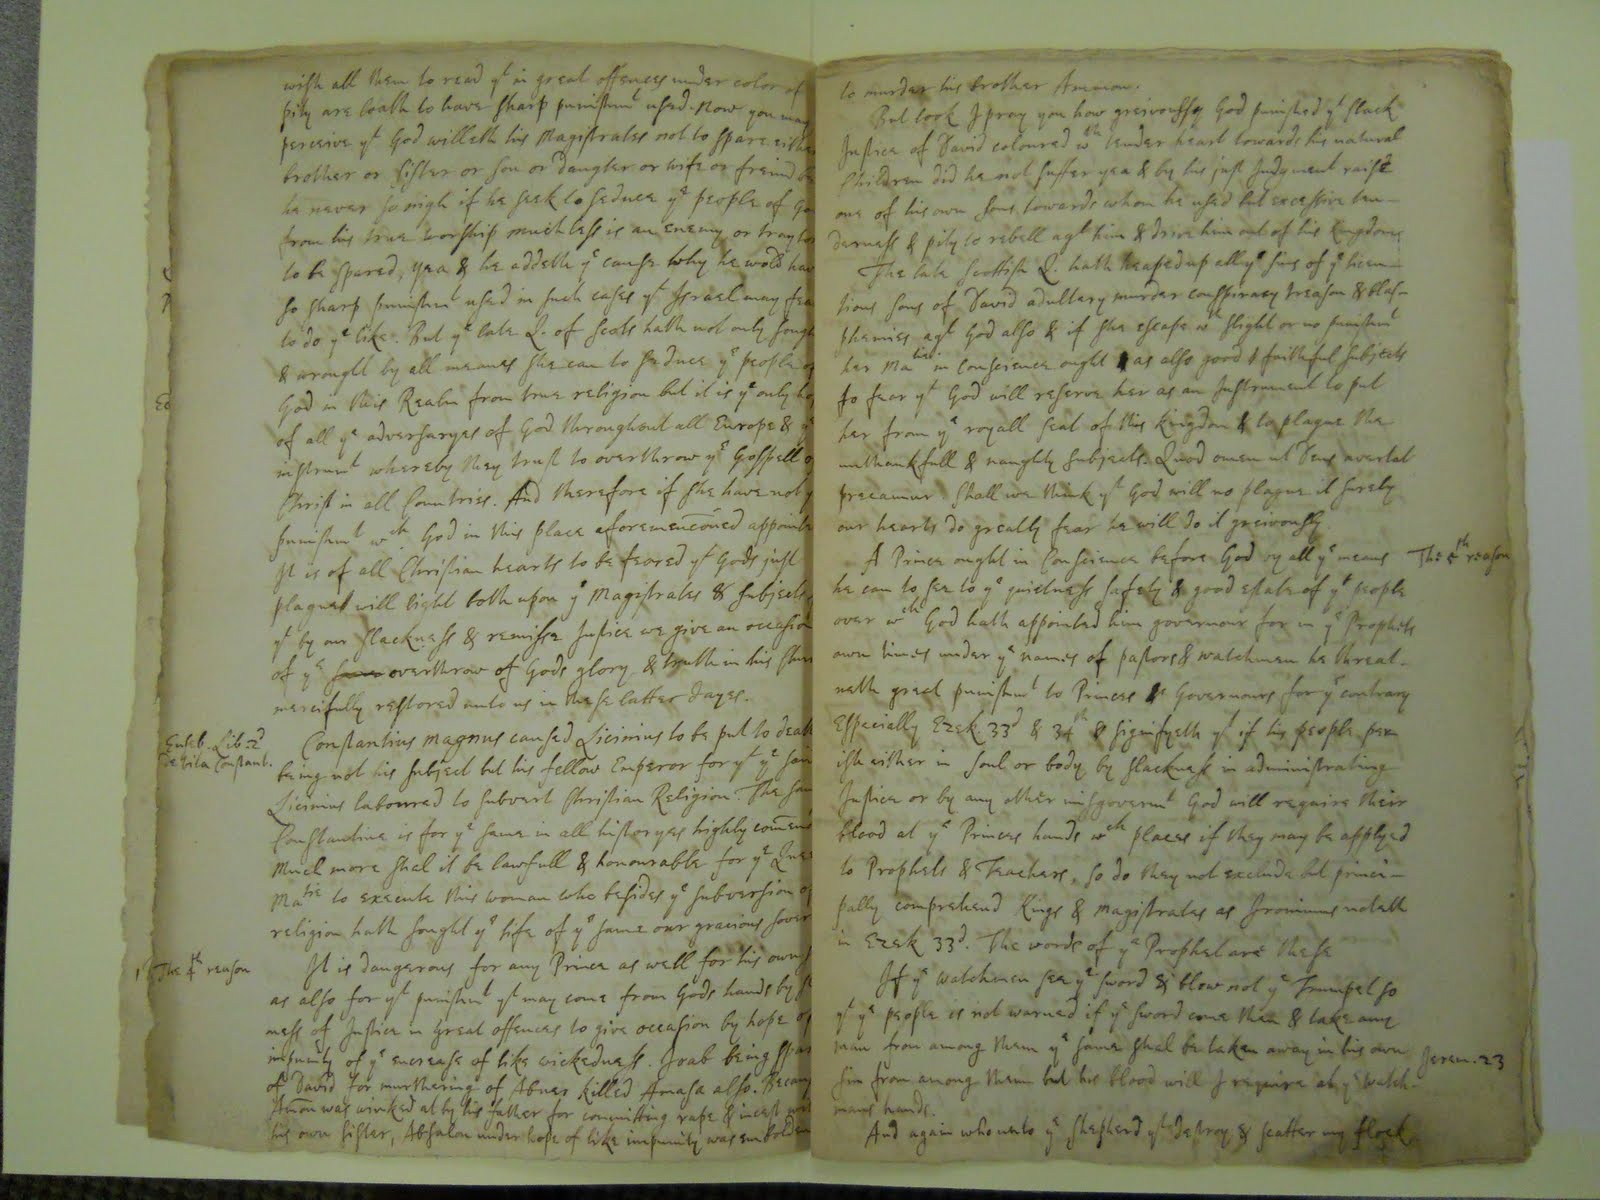 wish all them to read yt in great offences under color of
pity are loath to have sharp punishmt used. Now you may
perceive yt God willeth his Magistrates not to spare eithe
brother or sister or son or daughter or wife or freind be
he never so nigh if he seek to seduce ye people of Go
from his true worship much less is an enemy or traytor
to be spared, yea & he addeth ye cause why he wold hav
so sharp punishmt used in such cases yt Israel may fea
to do ye like. But ye late Q. of Scots hath not only sough
& wrought by all meanes she can to seduce ye people of
God in this Realm from true religion but it is ye only ho
of all ye adversaryes of God throughout all Europe & ye
instrumt whereby they trust to overthrow ye Gospell of
Christ in all Countries. And therefore if she have not y
punishmt wch God in this place aforemenconed appoint
It is of all Christian hearts to be feared yt Gods just
plagues will light both upon ye Magistrates & subjects
yt by our slackness & remisse Justice we give an occasion
of ye overthrow of Gods glory & truth in his Chur
mercifully restored unto us in these latter dayes.
Euseb. Lib. 2d
de vita Constant.
Constantius magnus caused Licinius to be put to death
being not his subject but his fellow Emperor for yt ye said
Licinius laboured to subvert Christian Religion. The sam
Constantine is for ye same in all historyes highly comend
Much more shal it be lawfull & honourable for ye Quee
Matie to execute this woman who besides ye subversion of
religion hath sought ye life of ye same our gracious sover
The 4th reason
It is dangerous for any Prince as well for his own
as also for yt punishmt yt may come from Gods hands by sl
ness of Justice in great offences to give occasion by hope of
impunity of ye encrease of like wickedness. Joab being spar
of David for murthering of Abner killed Amasa also. Becaus
Amon was winked at by his father for committing rape & incest with
his own sister, Absalon under hope of like impunity was embolden
to murder his brother Ammon.
But look I pray you how greivously God punished yt slack
Justice of David coloured wth tender heart towards his natural
Children did he not suffer yea & by his just Judgment raise
one of his own sons towards whom he used but excessive ten-
derness & pity to rebell agt him & drive him out of his kingdome
The late Scottish Q. hath heaped up all ye sins of ye licen-
tious sons of David adultery murder conspiracy treason & blas-
phemies agt God also & if she escape wt slight or no punishmt
her Matie in conscience ought as also good & faithful subjects
to fear yt God will reserve her as an Instrument to put
her from ye royall seat of this kingdom & to plague the
unthankfull & naughty subjects. Quod omen ut Deus avertat
precamur. Shall we think yt God will no plague it surely
our hearts do greatly fear he will do it greivously.
A Prince ought in Conscience before God by all ye means
The 5th reason
he can to see to ye quietness safety & good estate of ye people
over wch God hath appointed him governour for in ye Prophets
own times under ye names of pastors & watchmen he threat-
neth great punishmt to Princes & Governours for ye contrary
Especially Ezek 33d & 34th & signifyeth yt if his people per
ish either in soul or body by slackness in administrating
Justice or by any other misgovernmt God will require their
blood at ye Princes hands wch places if they may be applyed
to Prophets & Teachers, so do they not exclude but princi-
pally comprehend Kings & Magistrates as Jronimus noteth
in Ezek 33d. The words of ye Prophet are these
If ye watchmen see ye sword & blow not ye Trumpet so
yt ye people is not warned if ye sword come then & take any
man from among them ye same shal be taken away in his own
Jerem. 23
sin from among them but his blood will I require at ye watch-
mans hands.
And again who unto ye shepherd yt destroy & scatter my flock